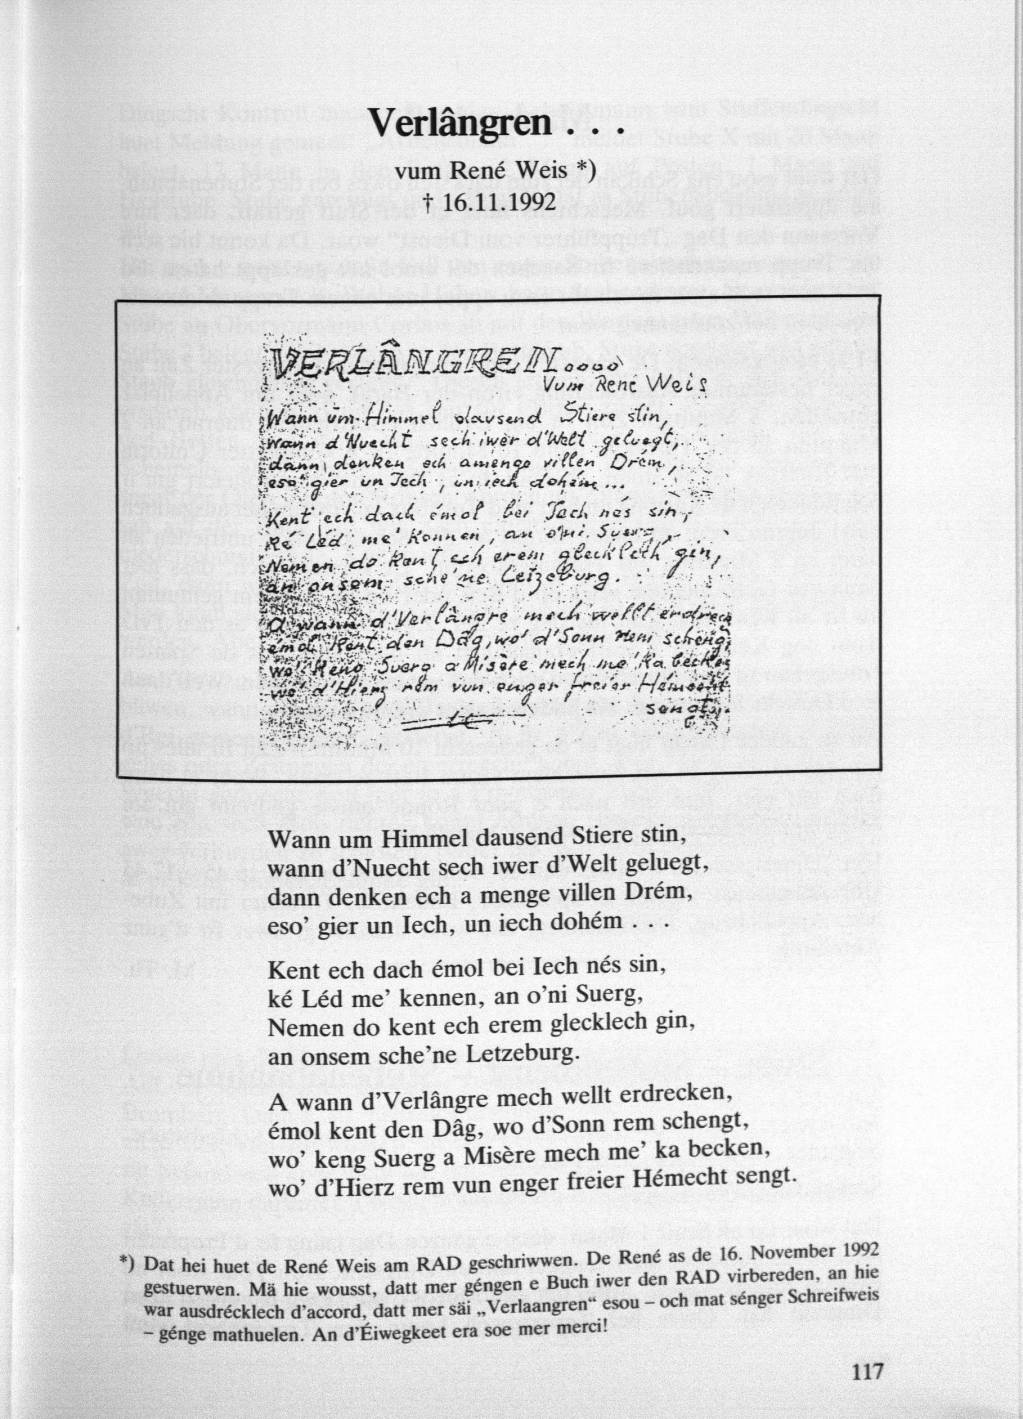 Verlângren . . .
vum René Weis *)
† 16.11.1992
VERLÂNGREN....
Vum René Weis
Wann um Himmel dausend Stiere stin,
wann d'Nuecht sech iwer d'Welt geluegt,
dann denken ech amenge villen Drém,
eso' gier un Iech, un iech dohém...
Kent ech dach émol bei Iech nés sin,
ké Léd me' kennen, an o'ni Suerg,
Nemen do kent ech erem glecklech gin,
an onsem sche'ne Letzeburg.
A wann d'Verlângre mech wellt erdreck
émol kent den Dâg, wo' d'Sonn rem schengt,
wo' keng Suerg a Misère mech me' ka becken
wo' d'Hierz rem vun enger freier Hémecht
sengt.
Wann um Himmel dausend Stiere stin,
wann d’Nuecht sech iwer d’Welt geluegt,
dann denken ech a menge villen Drém,
eso’ gier un Iech, un iech dohém . . .
Kent ech dach émol bei Iech nés sin,
ké Léd me’ kennen, an o’ni Suerg,
Nemen do kent ech erem glecklech gin,
an onsem sche’ne Letzeburg.
A wann d’Verlângre mech wellt erdrecken,
émol kent den Dâg, wo d’Sonn rem schengt,
wo’ keng Suerg a Misère mech me’ ka becken,
wo’ d’Hierz rem vun enger freier Hémecht sengt.
*) Dat hei huet de René Weis am RAD geschriwwen. De René as de 16. November 1992
gestuerwen. Mä hie wousst, datt mer géngen e Buch iwer den RAD virbereden, an hie
war ausdrécklech d’accord, datt mer säi „Verlaangren“ esou – och mat sénger Schreifweis
– génge mathuelen. An d’Éiwegkeet era soe mer merci!
117